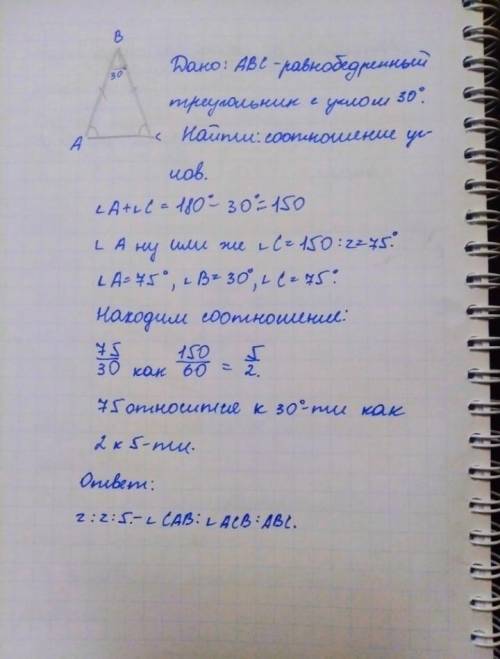 B
30°
A
с
Дано: ABC-равнобедренный
треугольник с углом 30°.
Найти: соотношение уг-
лов.
∠A+∠C = 180°- 30°=150
∠ A ну или же ∠C=150:2=75°.
∠A=75°, ∠B=30°, ∠C=75°.
Находим соотношение:
75/30 как 150/60 = 5/2.
75 относится к 30°-ти как
2 к 5-ти.
Ответ:
2:2:5.-∠CAB:∠ACB:ABC.